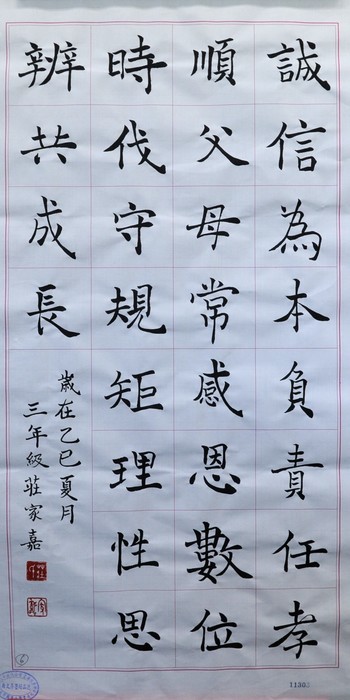 誠信為本負責任孝
順父母常感恩數位
時伐守規矩理性思
辨共成長
歲在乙巳夏月
三年級莊家嘉